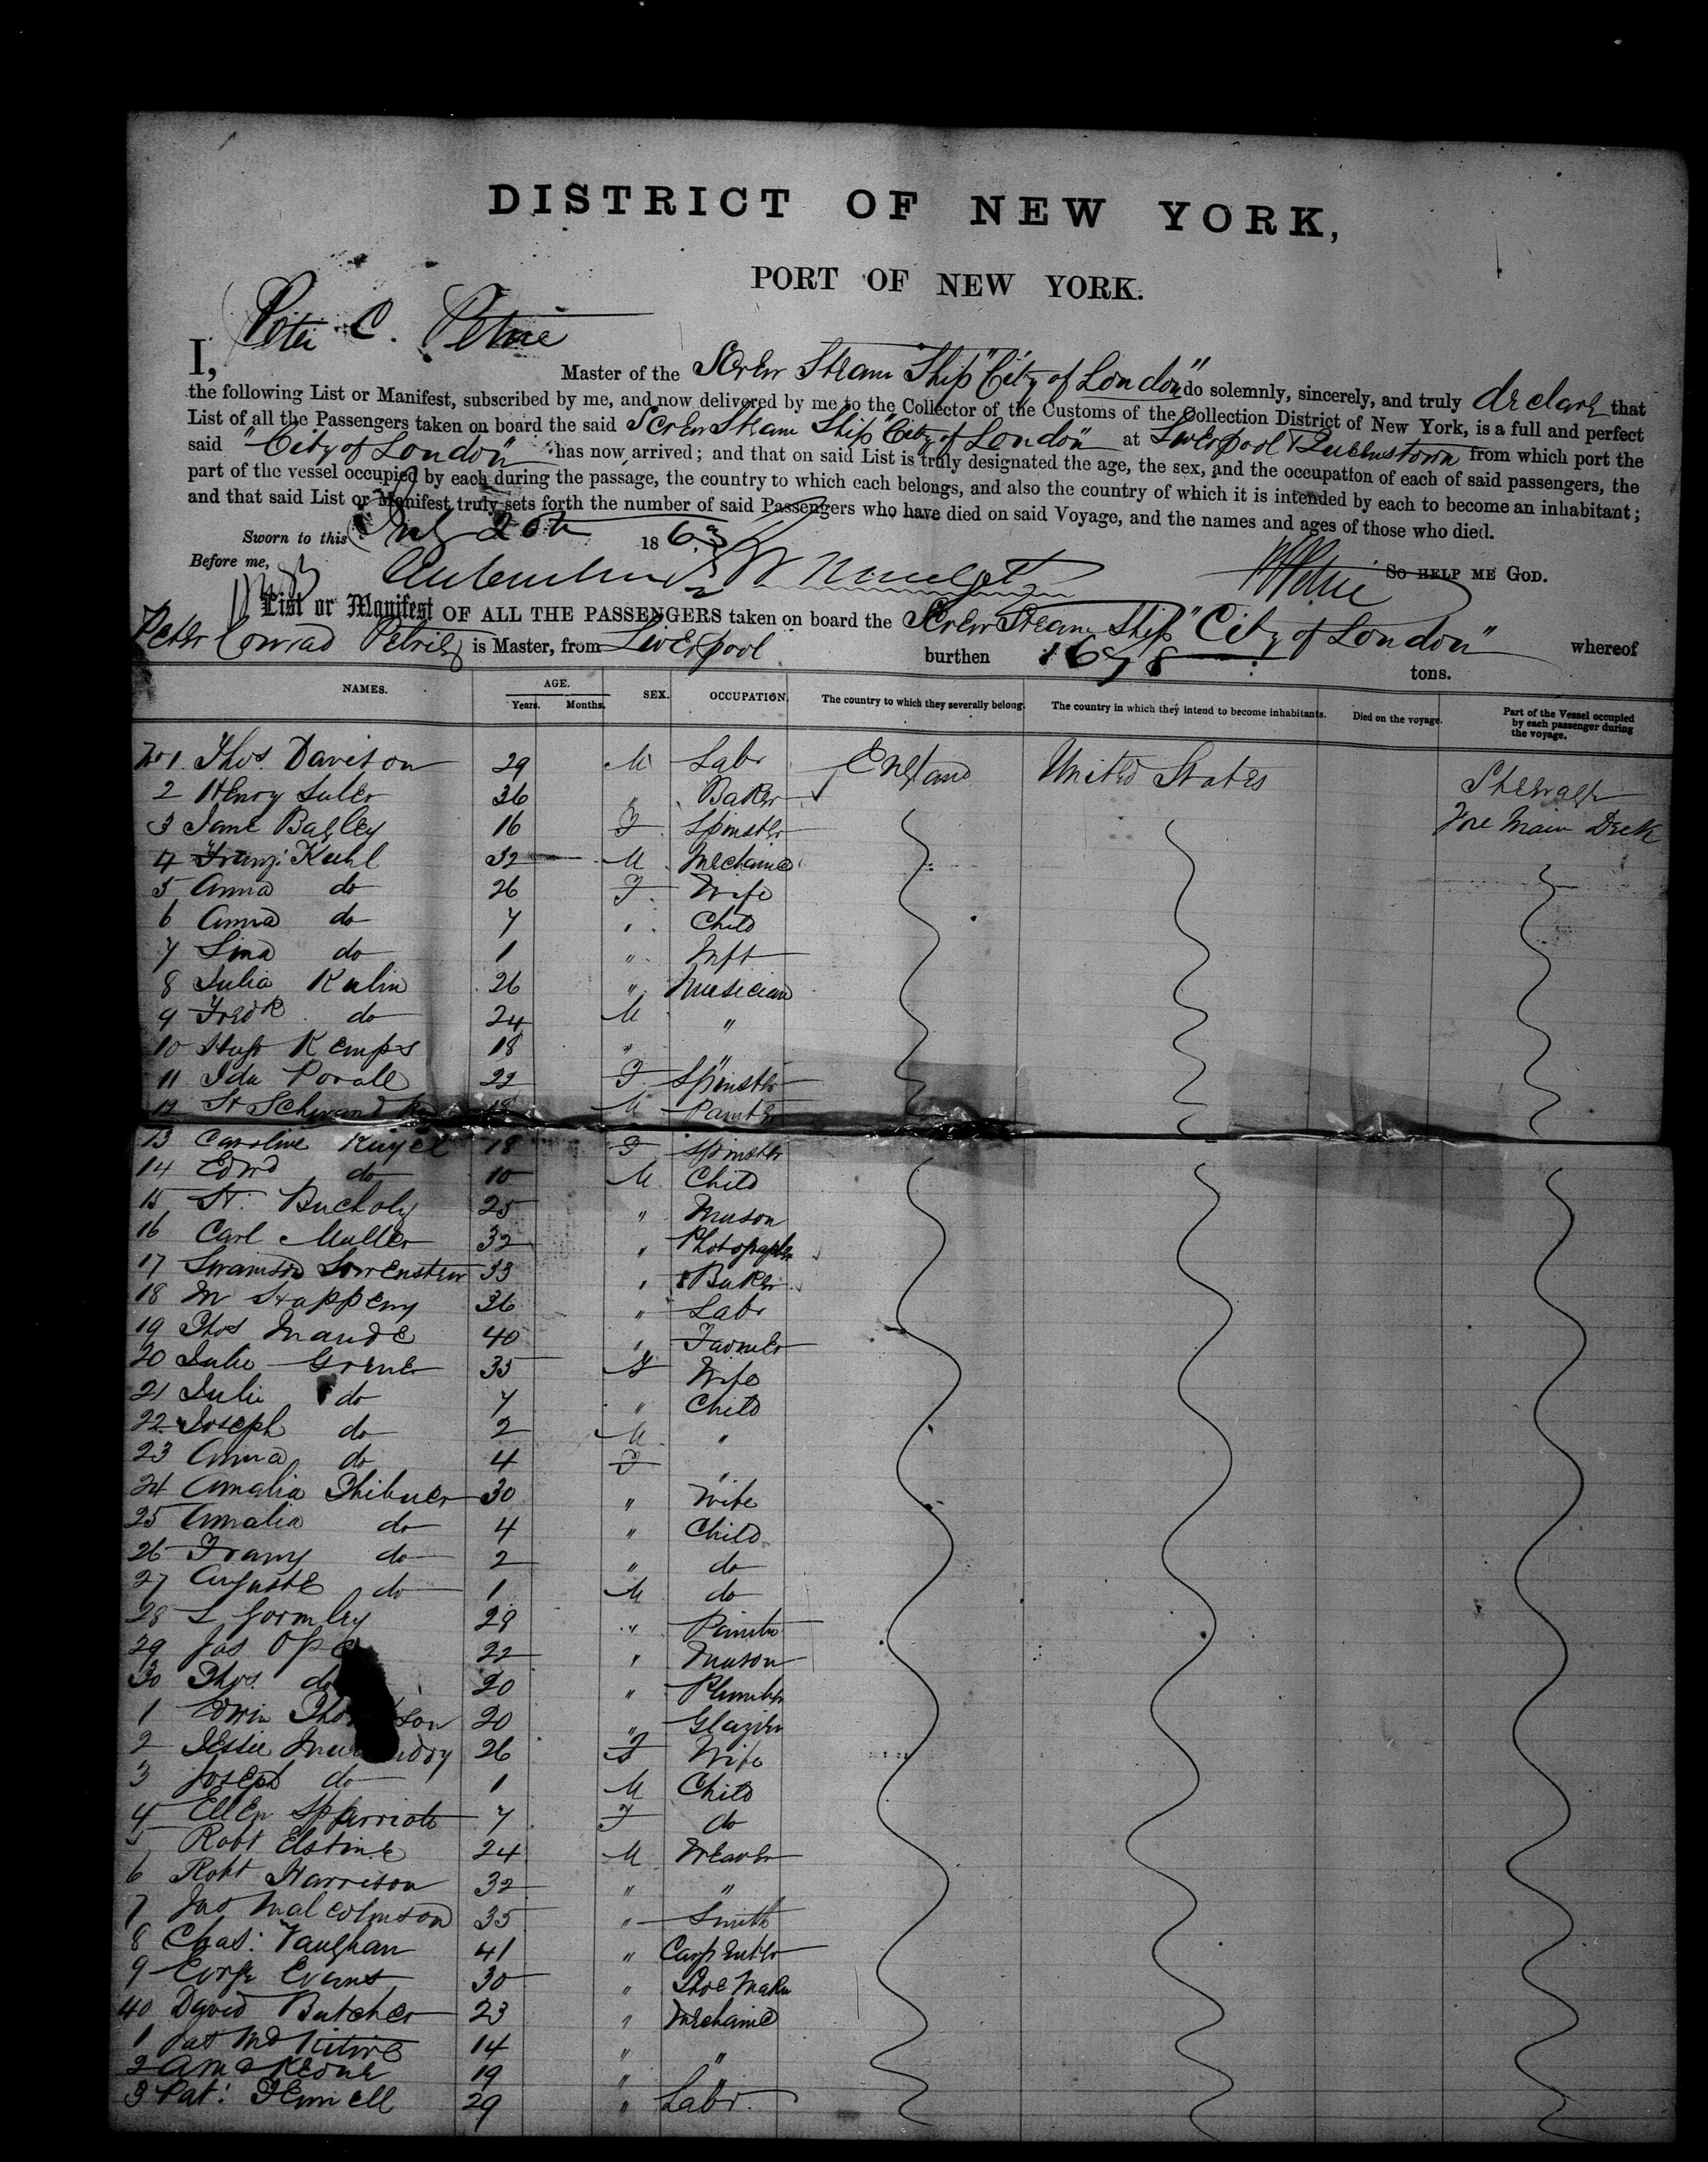 DISTRICT OF NEW YORK,
PORT OF NEW YORK.
I, Peter C. Petrie Master of the Screw Steam Ship "City of London" do solemnly, sincerely, and truly declare that
the following List or Manifest, subscribed by me, and now delivered by me to the Collector of the Customs of the Collection District of New York, is a full and perfect
List of all the Passengers taken on board the said Screw Steam Ship "City of London" at Liverpool & Queenstown from which port the
said "City of London" has now arrived; and that on said List is truly designated the age, the sex, and the occupation of each of said passengers, the
part of the vessel occupied by each during the passage, the country to which each belongs, and also the country of which it is intended by each to become an inhabitant;
and that said List or Manifest truly sets forth the number of said Passengers who have died on said Voyage, and the names and ages of those who died.
Sworn to this July 20th 1863
So HELP ME GOD.
Before me, Petrie
List or Manifest OF ALL THE PASSENGERS taken on board the Screw Steam Ship "City of London" whereof
Peter Conrad Petrie is Master, from Liverpool burthen 1698 tons.
NAMES. AGE. Years. Months. SEX. OCCUPATION. The country to which they severally belong. The country in which they intend to become inhabitants. Died on the voyage. Part of the Vessel occupied by each passenger during the voyage.
No 1 Thos. Davison 29 M Labr England United States Steerage
2 Henry Suler 36 " Baker
3 Jane Bagley 16 F Spinster Fore Main Deck
4 Franz Kuhl 32 M Mechanic
5 Anna do 26 F Wife
6 Anna do 7 " Child
7 Lina do 1 " Inft
8 Julia Kulin 26 " Musician
9 Fredk do 24 M "
10 Hugo Kemps 18 " "
11 Ida Porall 22 F Spinster
12 H Schwand 18 M Painter
13 Caroline Kugel 18 F Spinster
14 Edwd do 10 M Child
15 H. Bucholz 25 " Mason
16 Carl Muller 32 " Photographer
17 Lowenstein 33 " Baker
18 M Happeny 36 " Labr
19 Thos Maude 40 " Farmer
20 Julie Grene 35 F Wife
21 Julie do 7 " Child
22 Joseph do 2 M "
23 Anna do 4 F "
24 Amalia Thibuer 30 " Wife
25 Amalia do 4 " Child
26 Franz do 2 " do
27 Auguste do 1 M do
28 L Gormley 28 " Painter
29 Jas Ope 22 " Mason
30 Thos. do 20 " Plumber
1 Edwin Tho son 20 " Glazier
2 Jessie 26 F Wife
3 Joseph do 1 M Child
4 Ellen Sparriott 7 F do
5 Robt Elstine 24 M Weaver
6 Robt Harrison 32 " "
7 Jno Malcolmson 35 " Smith
8 Chas. Vaughan 41 " Carpenter
9 George Evans 30 " Shoe Maker
40 David Butcher 23 " Mechanic
1 Pat 14 " "
2 A McKeone 19 " "
3 Pat. Fennell 29 " Labr.